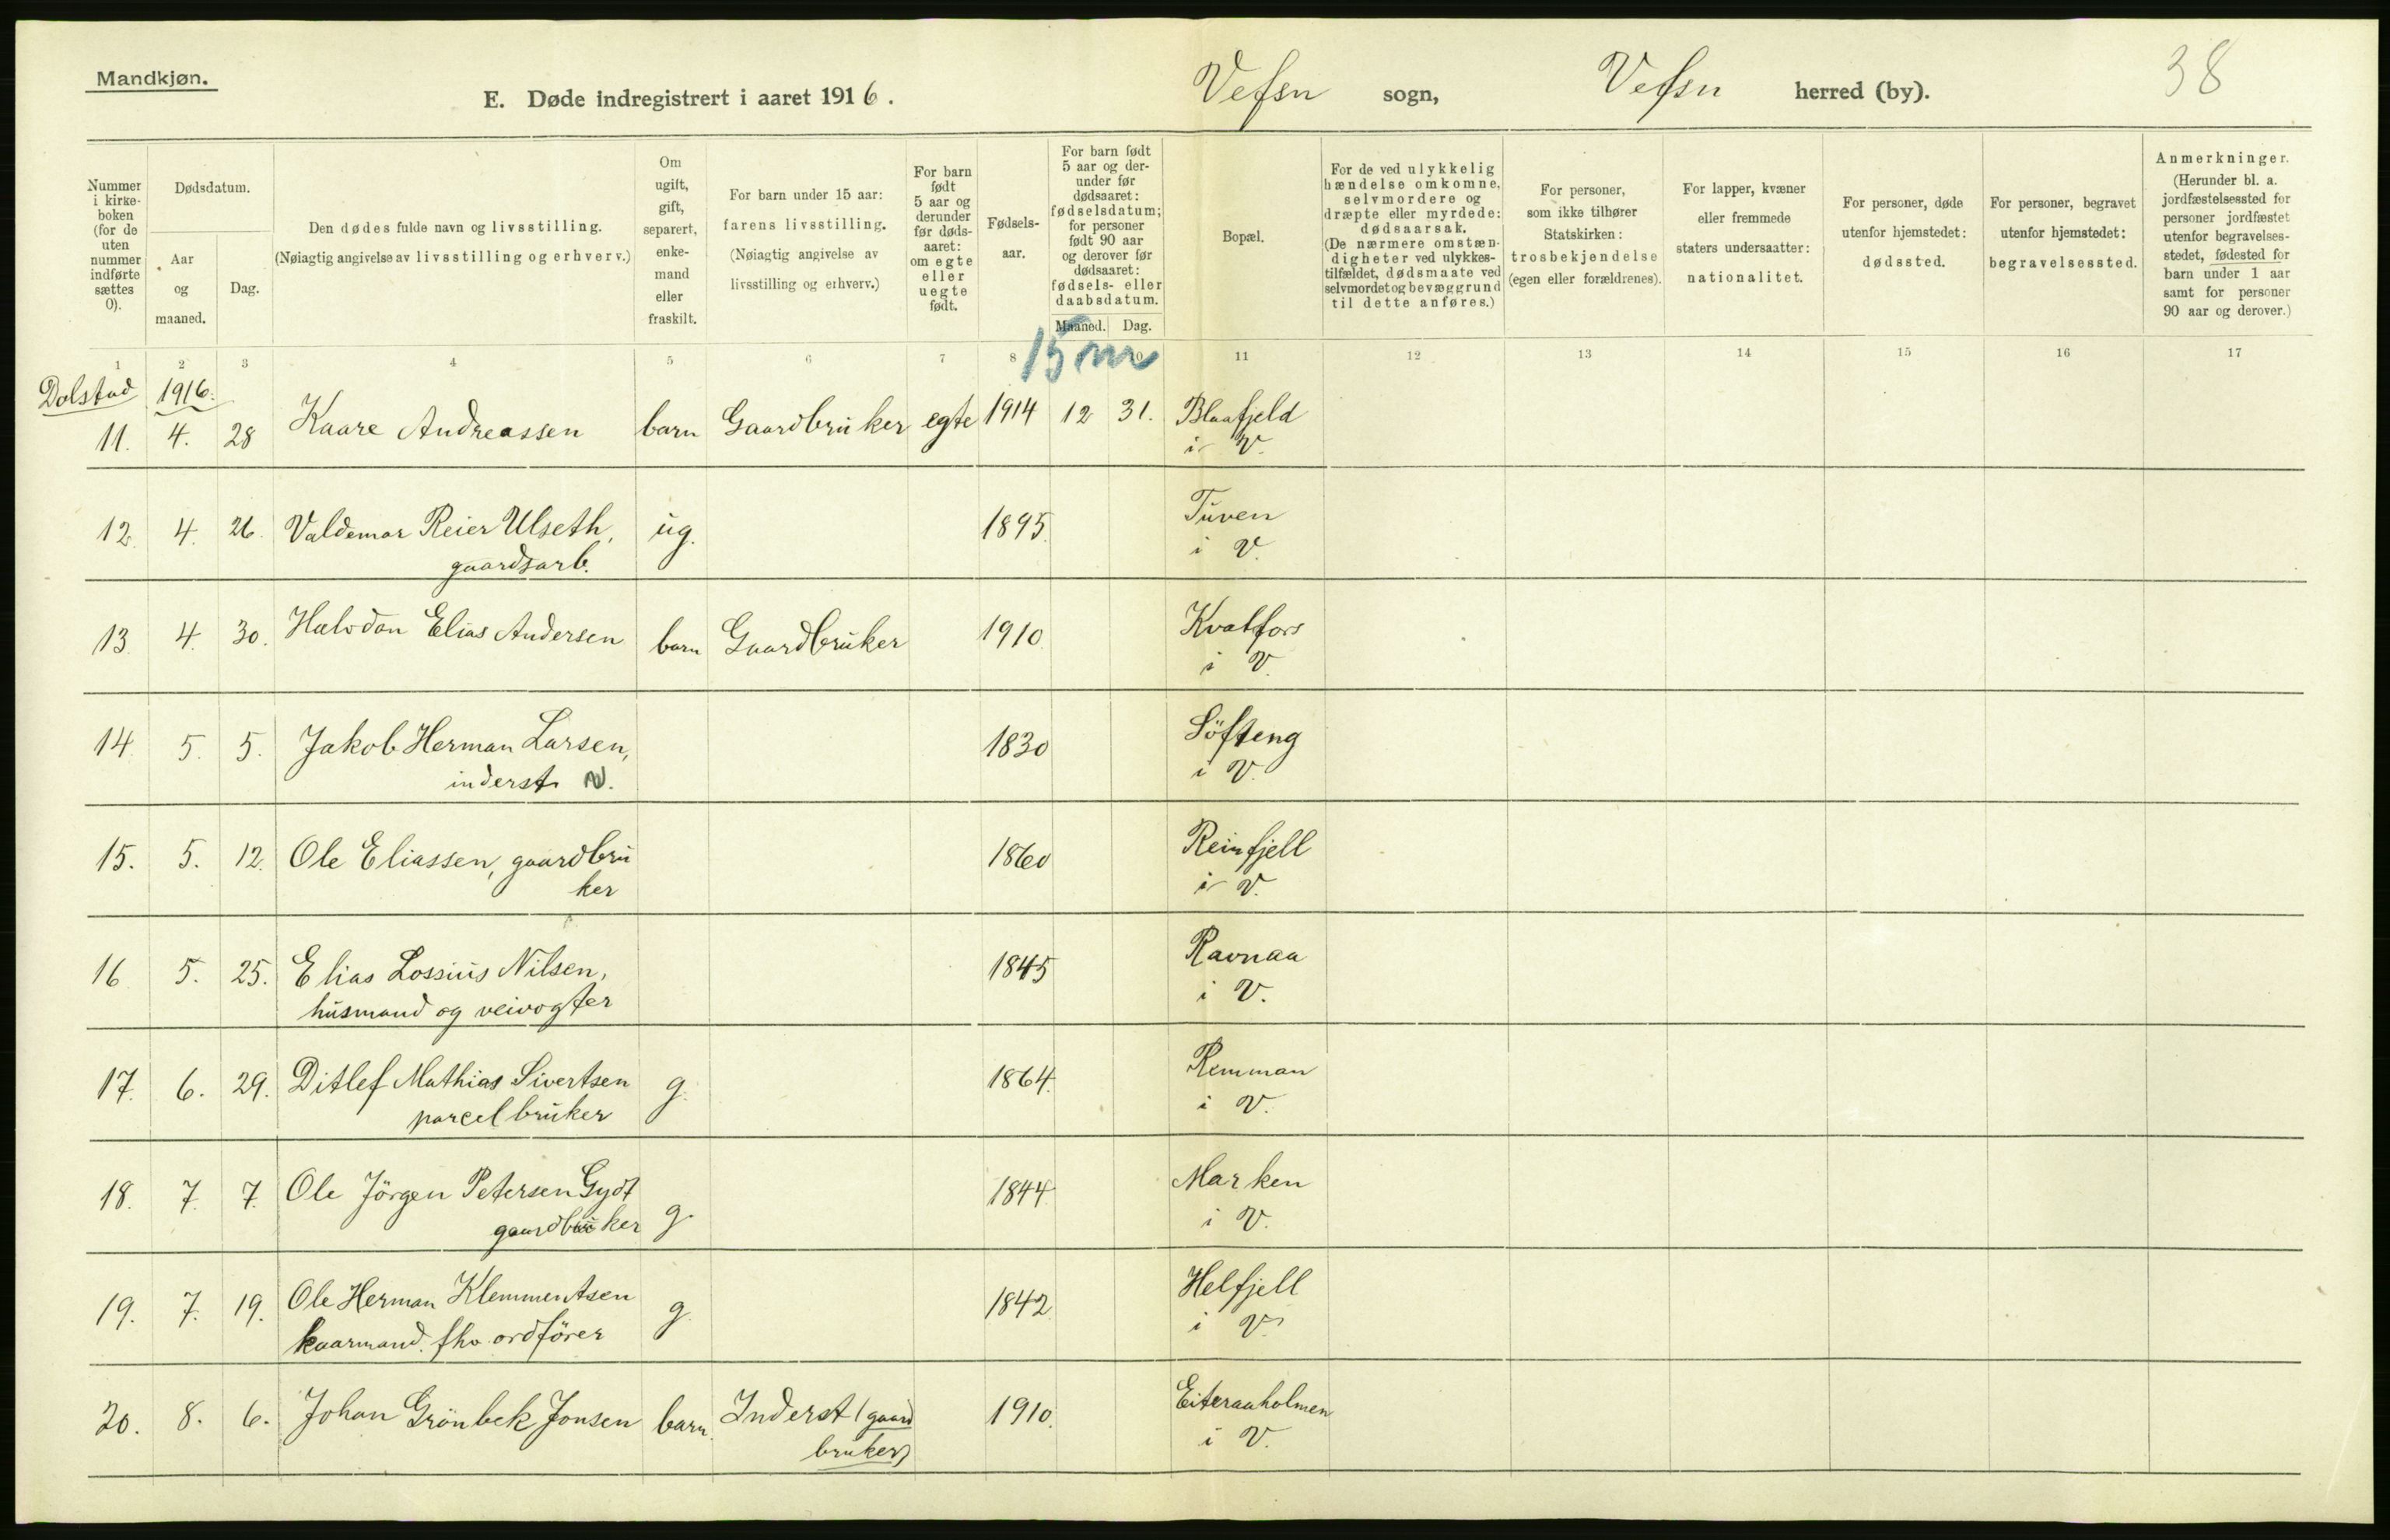 Mandkjøn.
E. Døde indregistrert i aaret 1916.
Vefsn sogn, Vefsn herred (by).
38
Nummer i kirke-boken (for de uten nummer indførte sættes 0).
Dødsdatum.
Aar og maaned.
Dag.
Den dødes fulde navn og livsstilling.
(Nøiagtig angivelse av livsstilling og erhverv.)
Om ugift, gift, separert, enke-mand eller fraskilt.
For barn under 15 aar:
farens livsstilling.
(Nøiagtig angivelse av livsstilling og erhverv.)
For barn født 5 aar og derunder før døds-aaret: om egte eller uegte født.
Fødsels-aar.
For barn født 5 aar og der-under før dødsaaret: fødselsdatum; for personer født 90 aar og derover før dødsaaret: fødsels- eller daabsdatum.
Maaned. Dag.
Bopæl.
For de ved ulykkelig hændelse omkomne, selvmordere og dræpte eller myrdede: dødsaarsak.
(De nærmere omstæn-digheter ved ulykkes-tilfældet, dødsmaate ved selvmordet og bevæggrund til dette anføres.)
For personer, som ikke tilhører Statskirken: trosbekjendelse (egen eller forældrenes).
For lapper, kvæner eller fremmede staters undersaatter: nationalitet.
For personer, døde utenfor hjemstedet: dødssted.
For personer, begravet utenfor hjemstedet: begravelsessted.
Anmerkninger.
(Herunder bl. a. jordfæstelsessted for personer jordfæstet utenfor begravelses-stedet, fødested for barn under 1 aar samt for personer 90 aar og derover.)
1 2 3 4 5 6 7 8 10 11 12 13 14 15 16 17
15 m
Dolstad 1916.
11. 4. 28 Kaare Andreassen barn Gaardbruker egte 1914 12 31. Blaafjeld
i V.
12. 4. 26. Valdemar Reier Ulseth, ug. 1895. Tuven
gaardsarb. i V.
13. 4. 30. Halvdan Elias Andersen barn Gaardbruker 1910 Kvalfors
i V.
14. 5. 5. Jakob Herman Larsen, 1830 Söfteng
inderst i V.
15. 5. 12. Ole Eliassen, gaardbru 1860 Reinfjell
ker i V.
16 5. 25. Elias Lossius Nilsen, 1845 Ravnaa
husmand og veivogter i V.
17. 6. 29. Ditlef Mathias Sivertsen g. 1864. Remman
parcelbruker i V.
18. 7. 7. Ole Jörgen Petersen Gydt 1844. Marken
gaardbruker g. i V.
19. 7. 19. Ole Herman Klemmentsen g. 1842. Helfjell
kaarmand. fhv. ordförer i V.
20. 8. 6. Johan Grönbek Jonsen barn. Inderst (gaard 1910. Eiteraaholmen
bruker) i V.